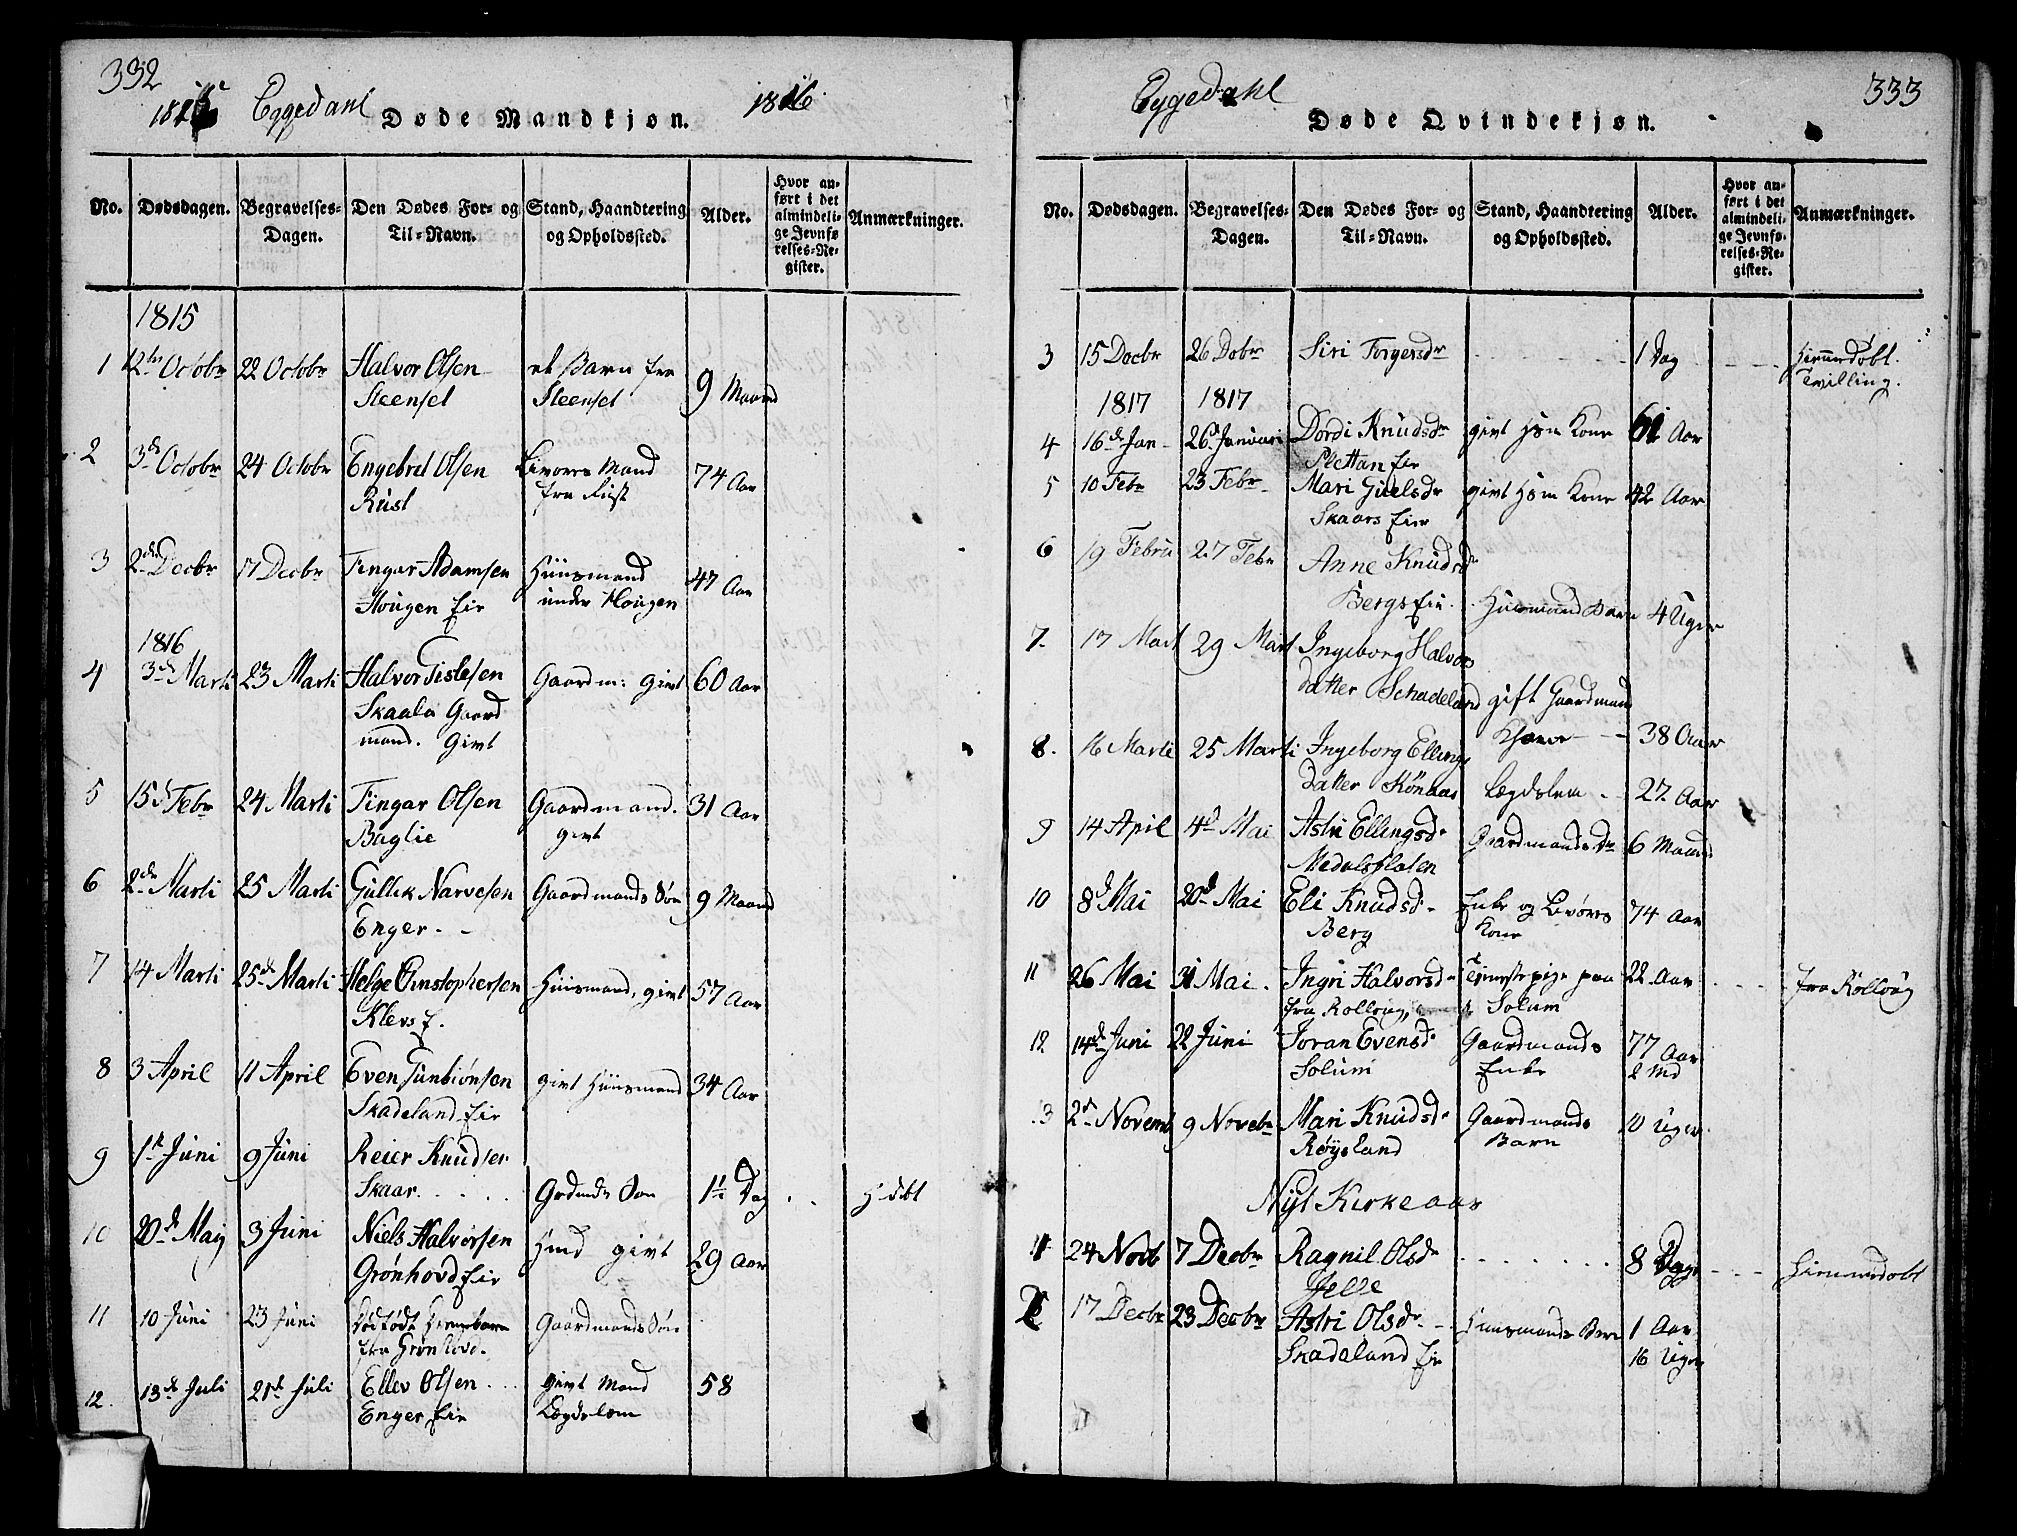 332
Eggedahl
Døde Mandkjøn.
1816
No. Dødsdagen. Begravelses-Dagen. Den Dødes For- og Til-Navn. Stand, Haandtering og Opholdssted. Alder. Hvor anført i det almindelige Jevnførelses-Register. Anmærkninger.
1815
1 12te Octobr 22 Octobr Halvor Olsen et Barn fra 9 Maaned
Steensel Steensel
2 3de Octobr 24 Octobr Engebret Olsen Mand 74 Aar
Rust fra Rust
3 2den Decbr 17 Decbr Tingar Adamsen Huusmand 47 Aar
Hougen Eie under Hougen
1816
4 3de Marti 23 Marti Halvor Tislesen Gaardm: givt 60 Aar
Skaala Gaard
mand. Givt
5 15d Febr 24 Marti Tingar Olsen Gaardmand. 31 Aar
Baglie givt
6 2de Marti 25 Marti Gullik Narvesen Gaardmands Søn 9 Maaned
Enger - -
7 14 Marti 25de Marti Helge Christophersen Huusmand, givt 57 Aar
Klevs E.
8 3 April 11 April Even Gunbiönsen givt Huusmand 34 Aar
Skadeland Eie
9 1st Juni 9 Juni Reier Knudsen
Skaar. . . . . Søn 1½ Dag . . H døbt
10 20de Maij 3 Juni Niels Halvorsen Hmd givt 29 Aar
Grönhovd Eie
11 10 Juni 23 Juni Dødfødt Drengebarn Gaardmands Søn
fra Grönhovd.
12. 13de Juli 21de Juli Ellev Olsen . . . givt Mand 58
Enger Eie Lægdslem
Eggedahl
333
Døde Qvindekjøn.
No. Dødsdagen. Begravelses-Dagen. Den Dødes For- og Til-Navn. Stand, Haandtering og Opholdssted. Alder. Hvor anført i det almindelige Jevnførelses-Register. Anmærkninger.
3 15 Decbr 26 Debr Siri Torgersdr 1 Dag Hiemmedøbt.
Tvilling.
1817 1817
4 16de Jan- 26de Januari Dordi Knudsdr givt Hsm Kone Aar
Slettan Eie
5 10 Febr 23 Febr Mari Gulelsdr givt Hsm Kone 42 Aar
Skaars Eie
6 19 Febru 27 Febr Anne Knudsdr
Bergs Eie . . Huusmand Barn 4 Uger
7. 17 Mart 29 Mart Ingeborg Halvors
datter Schadeland gift Gaardmand
Khone - - 38 Aar
8. 16 Marti 25 Marti Ingeborg Ellings
datter Kønaas Lægdslem - 27 Aar
9 14 April 4d Mai Astri Ellingsd. Gaardmands Dr 6 Maaned
Medalsflaten
10 8de Mai 20de Mai Eli Knudsd - Enke og 74 Aar
Berg Kone
11 26 Mai 31 Mai . Ingri Halvorsd - Tienestepige paa 22 Aar . . . . fra Rolloug
fra Rolloug, Solum
12 14de Juni 22 Juni Joran Evensd. Gaardmands 77 Aar
Solum Enke 2 Md
13 2d Novemb 9 Novebr Mari Knudsd. Gaardmands 10 Uger
Røysland Barn
Nyt Kirkeaar
1 24 Novb 7 Decbr Ragnil Olsdr 8 Dage . . . Hiemmedøbt
Jelle
2 17 Decbr 23 Decbr Astri Olsdr . - Huusmands Barn 1 Aar
Skadeland Eie 16 Uger